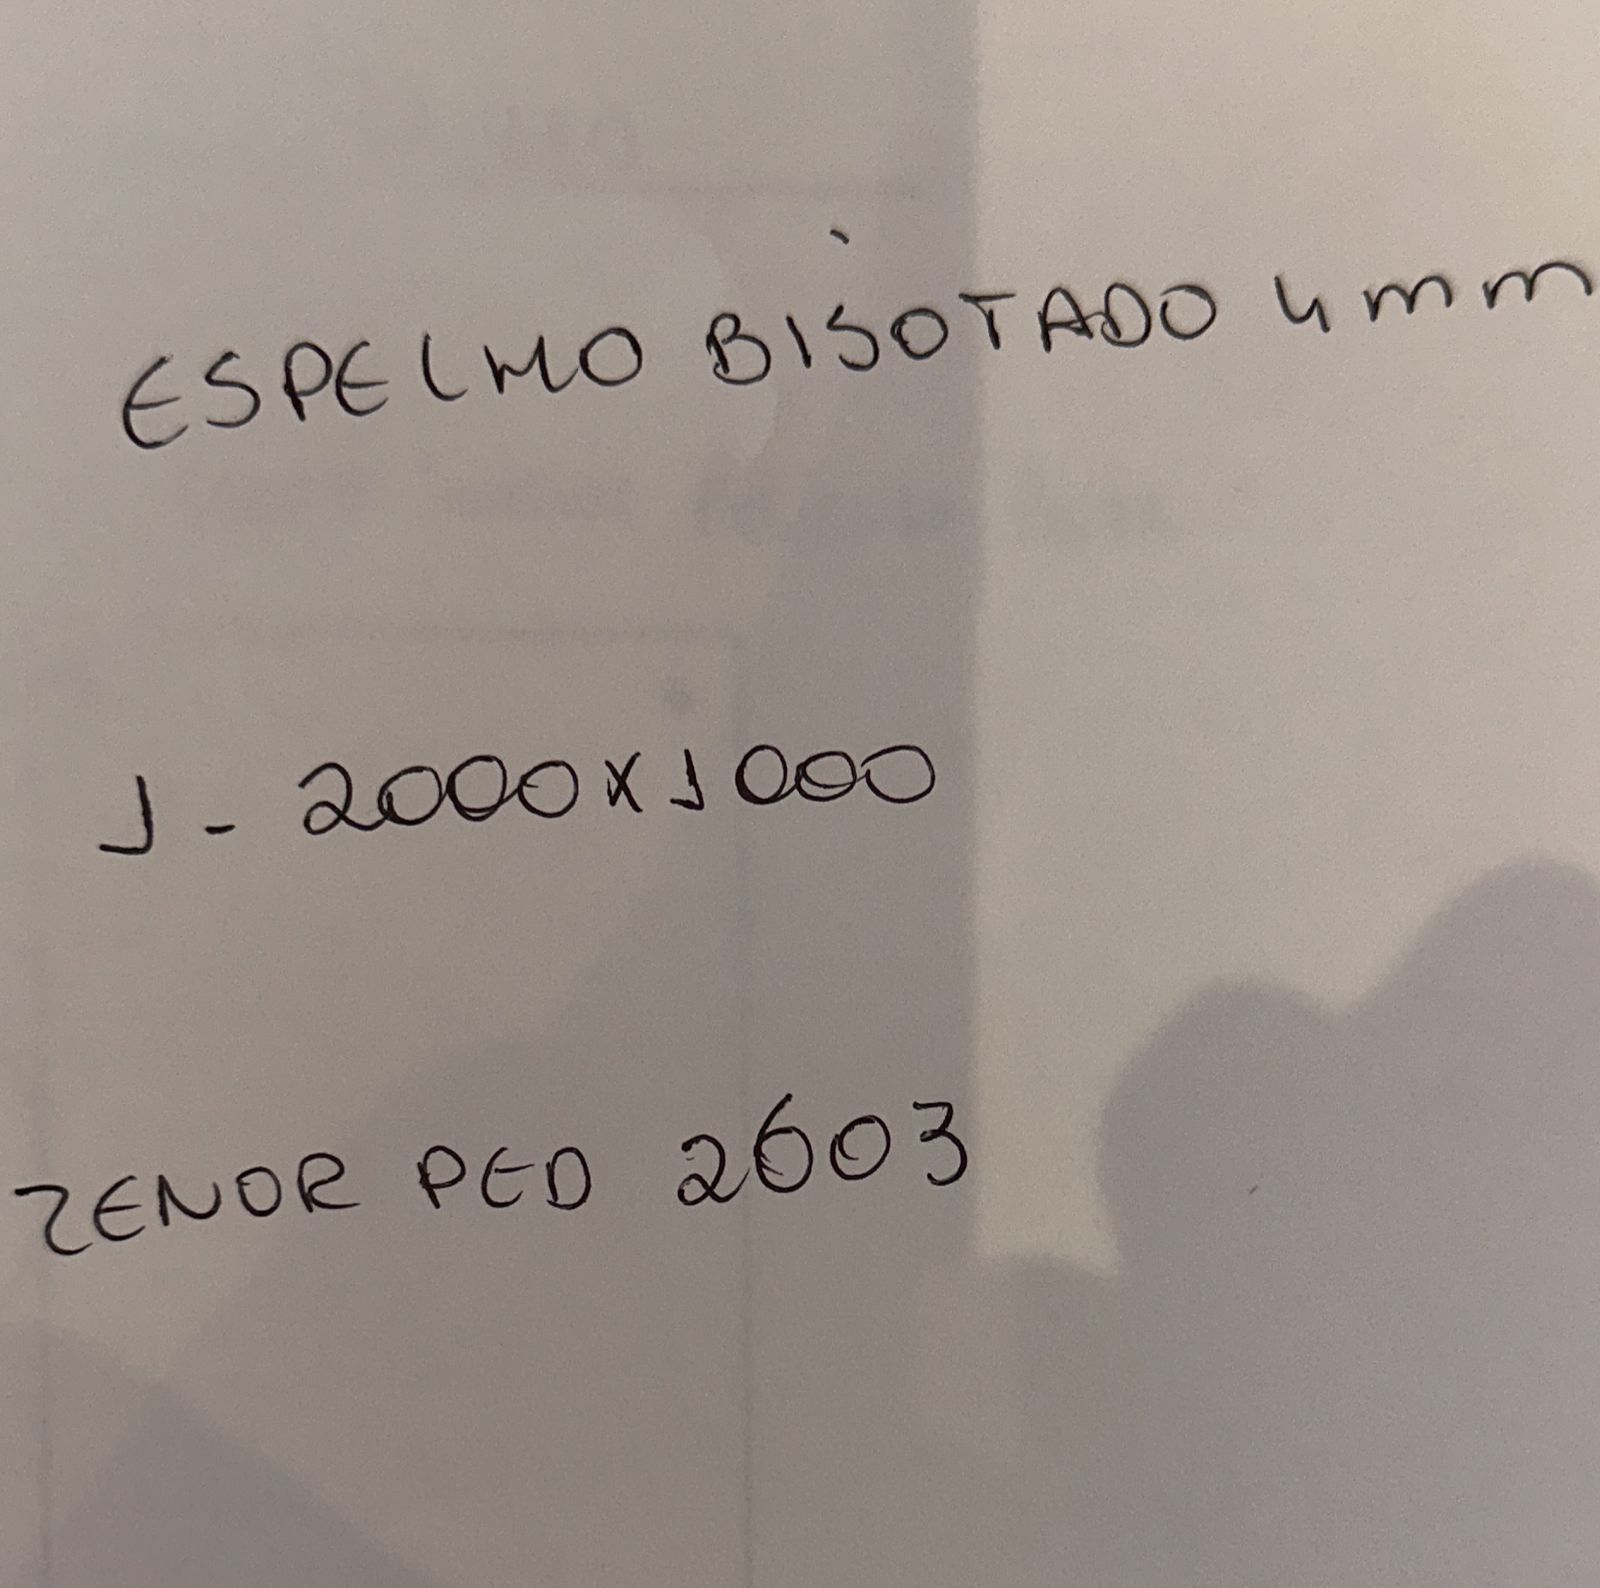 ESPELHO BISOTADO 4mm
1 - 2000x1000
ZENOR PED 2603